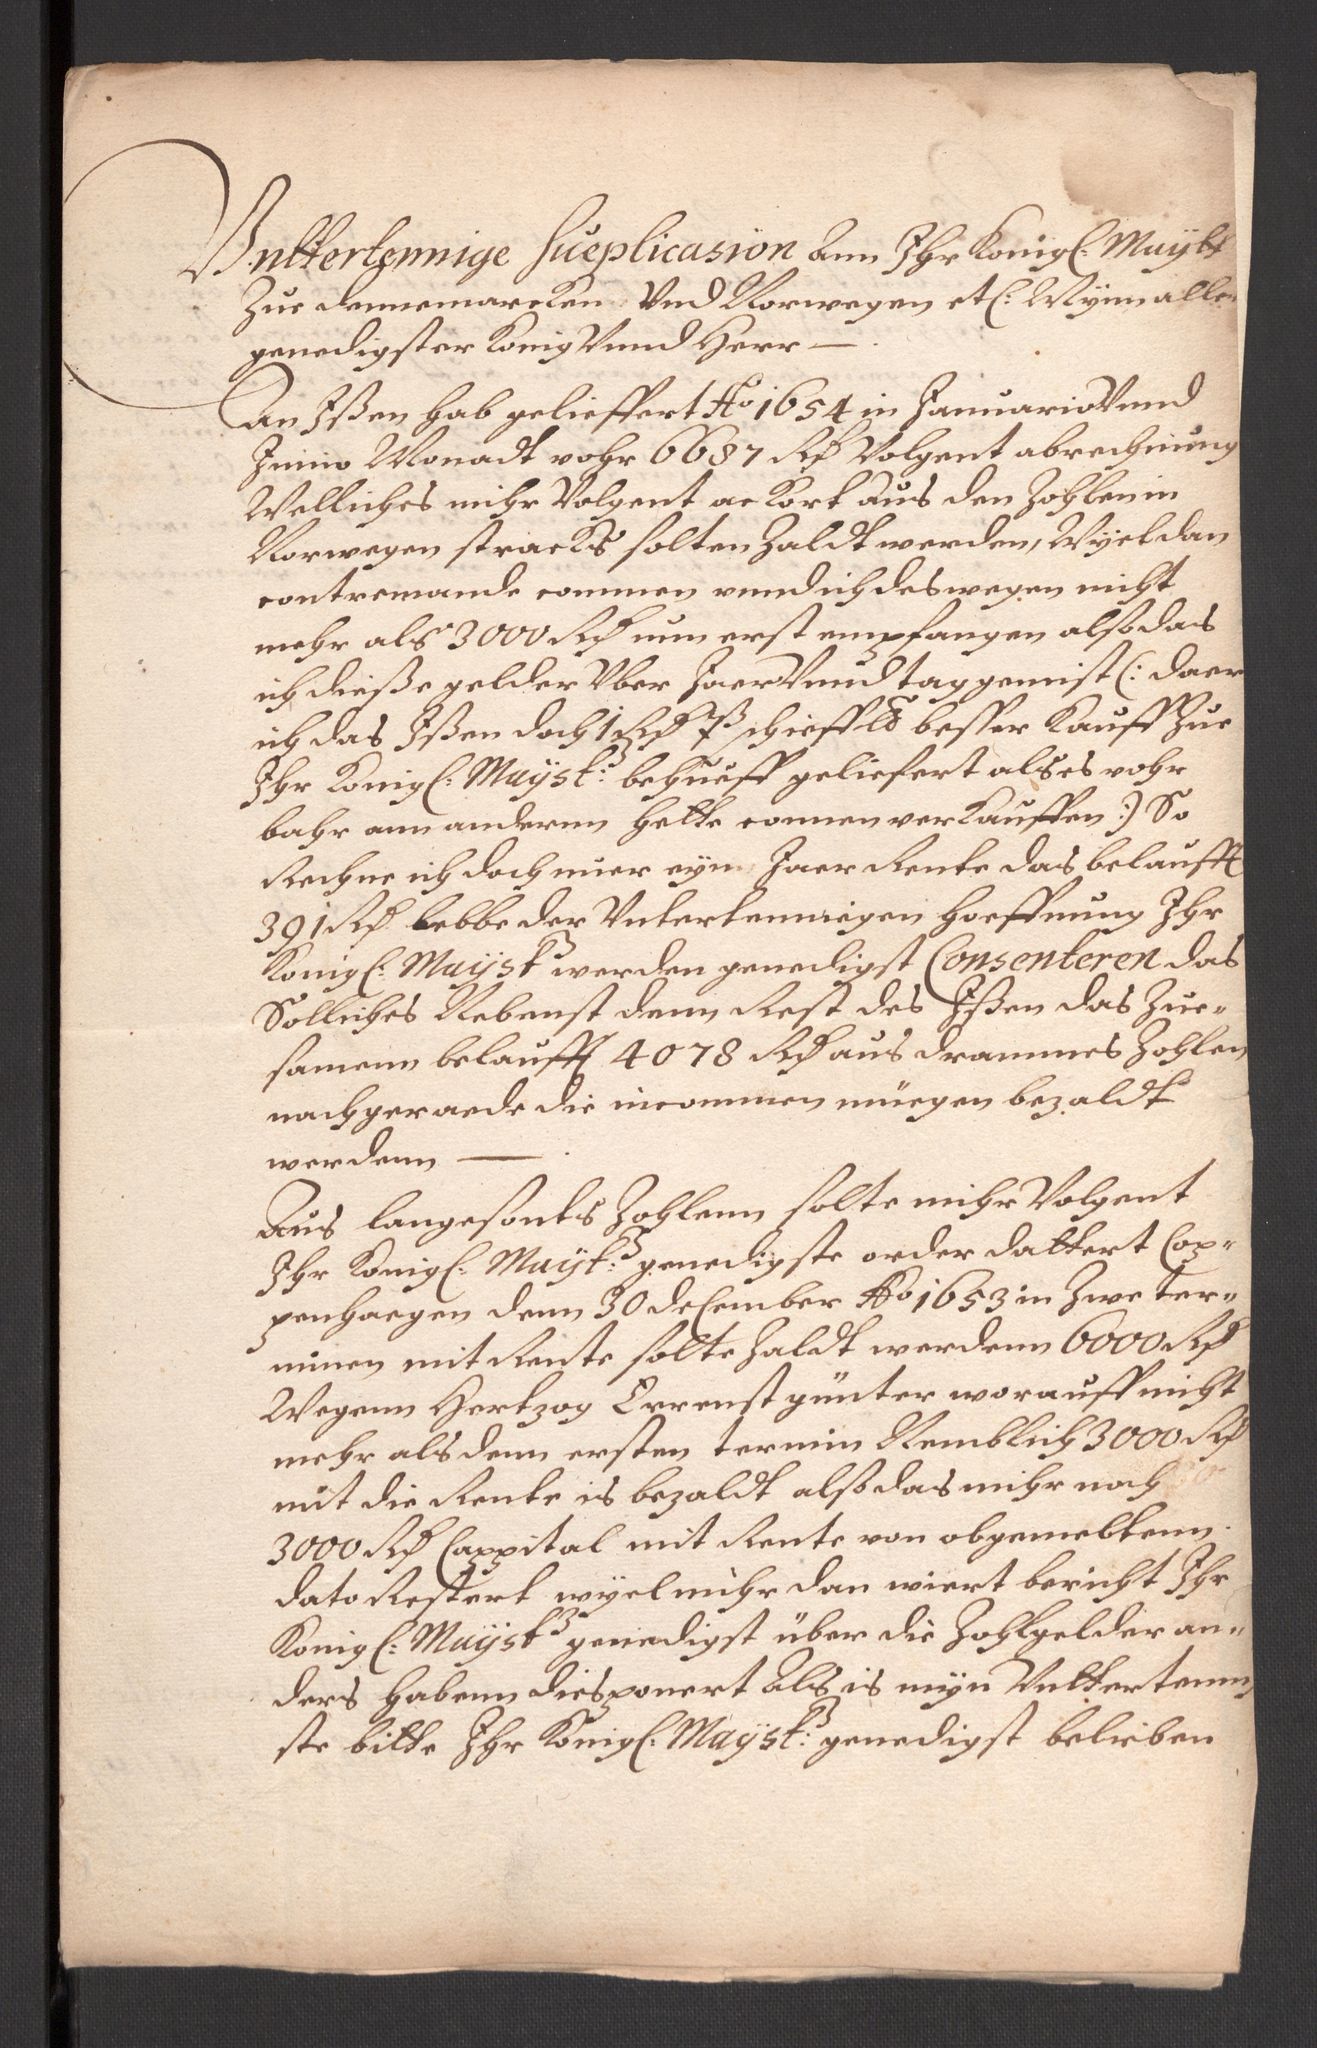 Vnttertennige Sueplicasion Ann Ihr Königl: Mayst
Zue dennemarcken Vnd Norwegen etc: Mÿnn aller
genedigster König Vnnd Herr —
An Ißen hab gelieffert Ao 1654 in Januario Vnnd
Junio Monadt vohr 6687 Rd Volgent abrechnung
Welliches mihr Volgent ackort aus den Zohlen in
Norwegen stracks solten Zaldt werden, Wÿel dan
contremande commen vnnd ich deswegen nicht
mehr als 3000 Rd nun erst empfangen also das
ich dieße gelder Vber Jaer Vnnd tag gemist (: daer
ich das Ißen doch 1 Rd pr schieff lb besser kauff Zue
Ihr Königl: Maÿst: behueff geliefert als es vohr
bahr ann anderenn hette connen verkauffen :) So
Rechne ich doch nuer eÿn Jaer Rente das belaufft
391 Rd lebbe der Vntertennigen hoeffnung Ihr
Königl: Maÿst: werden genedigst Consenteren das
Solliches Nebenst denn Rest des Ißen das Zue-
samenn belaufft 4078 Rd aus drammes Zohlen
nachgeraede die incommen müegen bezaldt
werdenn —
Aus langesonts Zohlenn solte mihr Volgent
Ihr Königl: Maÿst: genedigste order dattert Cop-
penhaegen denn 30 december Ao 1653 in Zwe ter-
minen mit Rente solte Zaldt werdenn 6000 Rd
Wegenn Hertzog Errenst günter worauff nicht
mehr als denn ersten termin Nemblich 3000 Rd
mit die Rente is bezaldt also das mihr noch
3000 Rd Cappital mit Rente von obgemeltenn
dato Restert wÿel mihr dan wiert bericht Ihr
Königl: Maÿst: genedigst über die Zohlgelder an-
ders habenn diesponert Als is mÿn Vnttertenn
ste bitte Ihr Königl: Maÿst: genedigst belieben